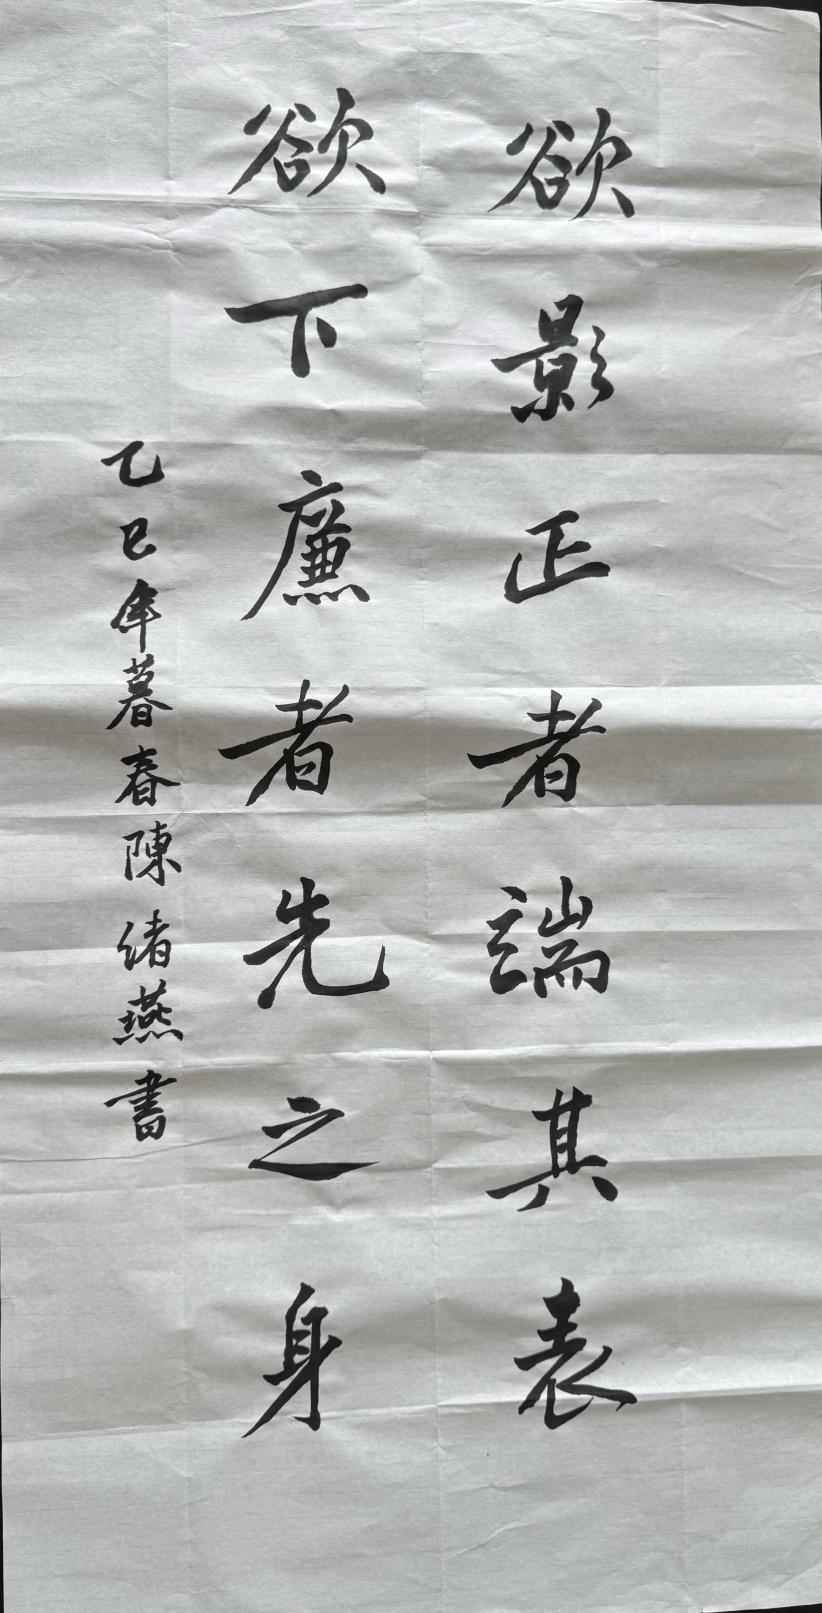 欲影正者端其表
欲下廉者先之身
乙巳年暮春陳绪燕書